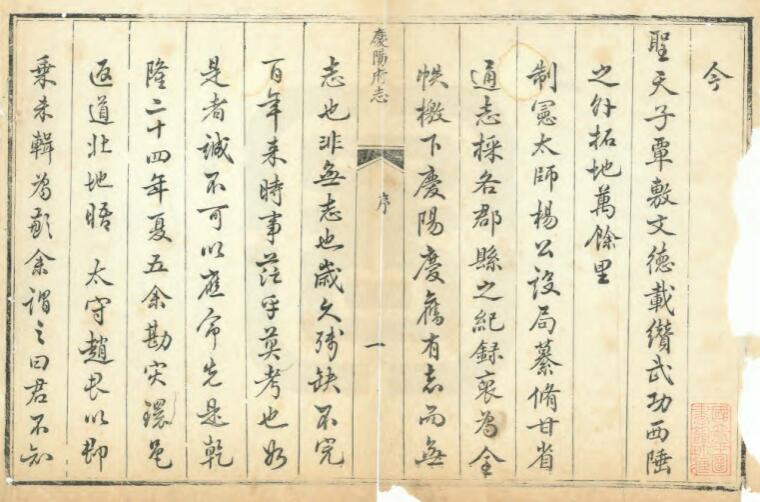 今
聖天子覃敷文德載纘武功西陲
之外拓地萬餘里
制憲太師楊公設局纂脩甘省
通志採各郡縣之紀録裒為全
帙檄下慶陽慶舊有志而無
慶陽府志
序
一
志也非無志也歲久殘缺不完
百年来時事茫乎莫考也如
是者誠不可以應命先是乾
隆二十四年夏五余勘灾環邑
返道此地晤 太守趙君以郡
乗未輯為慚余謂之曰君不知